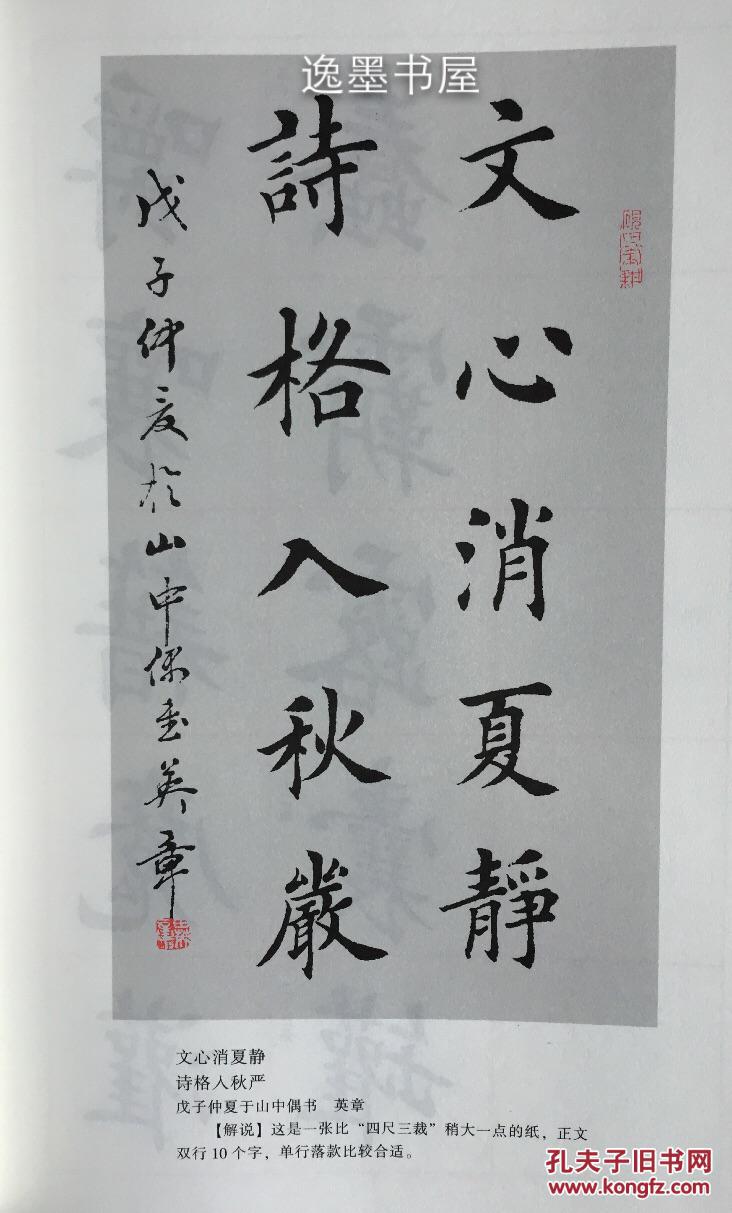 逸墨书屋
文心消夏靜
詩格入秋嚴
戊子仲夏於山中偶書英章
文心消夏静
诗格入秋严
戊子仲夏于山中偶书　英章
【解说】这是一张比“四尺三裁”稍大一点的纸，正文
双行10个字，单行落款比较合适。
孔夫子旧书网
www.kongfz.com